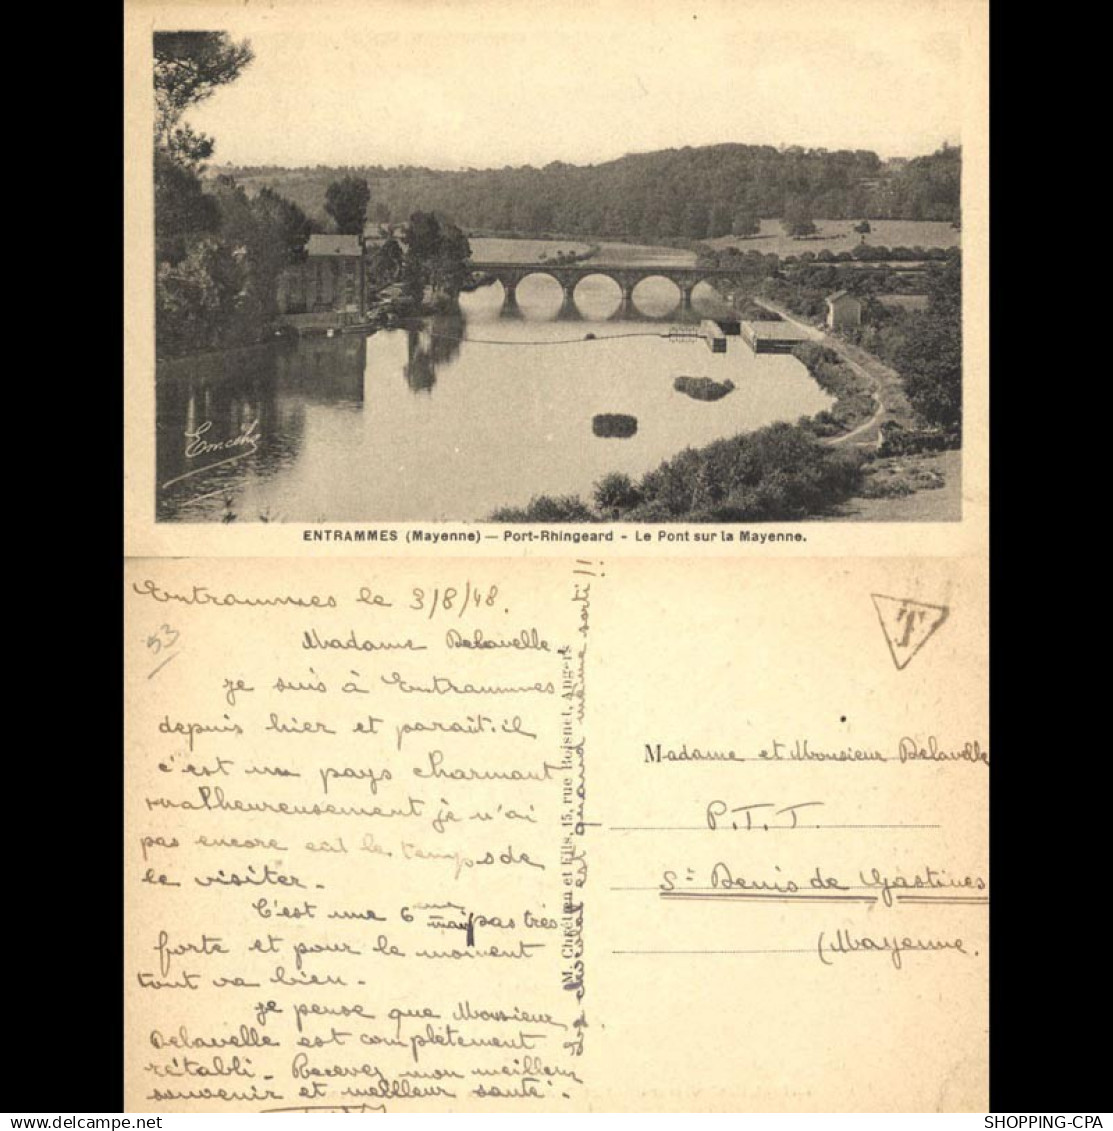 Emcebe
ENTRAMMES (Mayenne) — Port-Rhingeard - Le Pont sur la Mayenne.
Entrammes le 3/8/48.
53
Madame Delavelle.
je suis à Entrammes
depuis hier et paraît-il
c'est un pays charmant
malheureusement je n'ai
pas encore eût le temps de
le visiter.
C'est une 6 pas très
forte et pour le moment
tout va bien.
je pense que Monsieur
Delavelle est complètement
rétabli. Recevez mon meilleur
souvenir et meilleur santé.
Le chocolat est quand même sorti!!
M. Chrétien et Fils, 15, rue Boisnet, Angers
T
Madame et Monsieur Delavelle
P.T.T.
St Denis de Gastines
(Mayenne.
SHOPPING-CPA